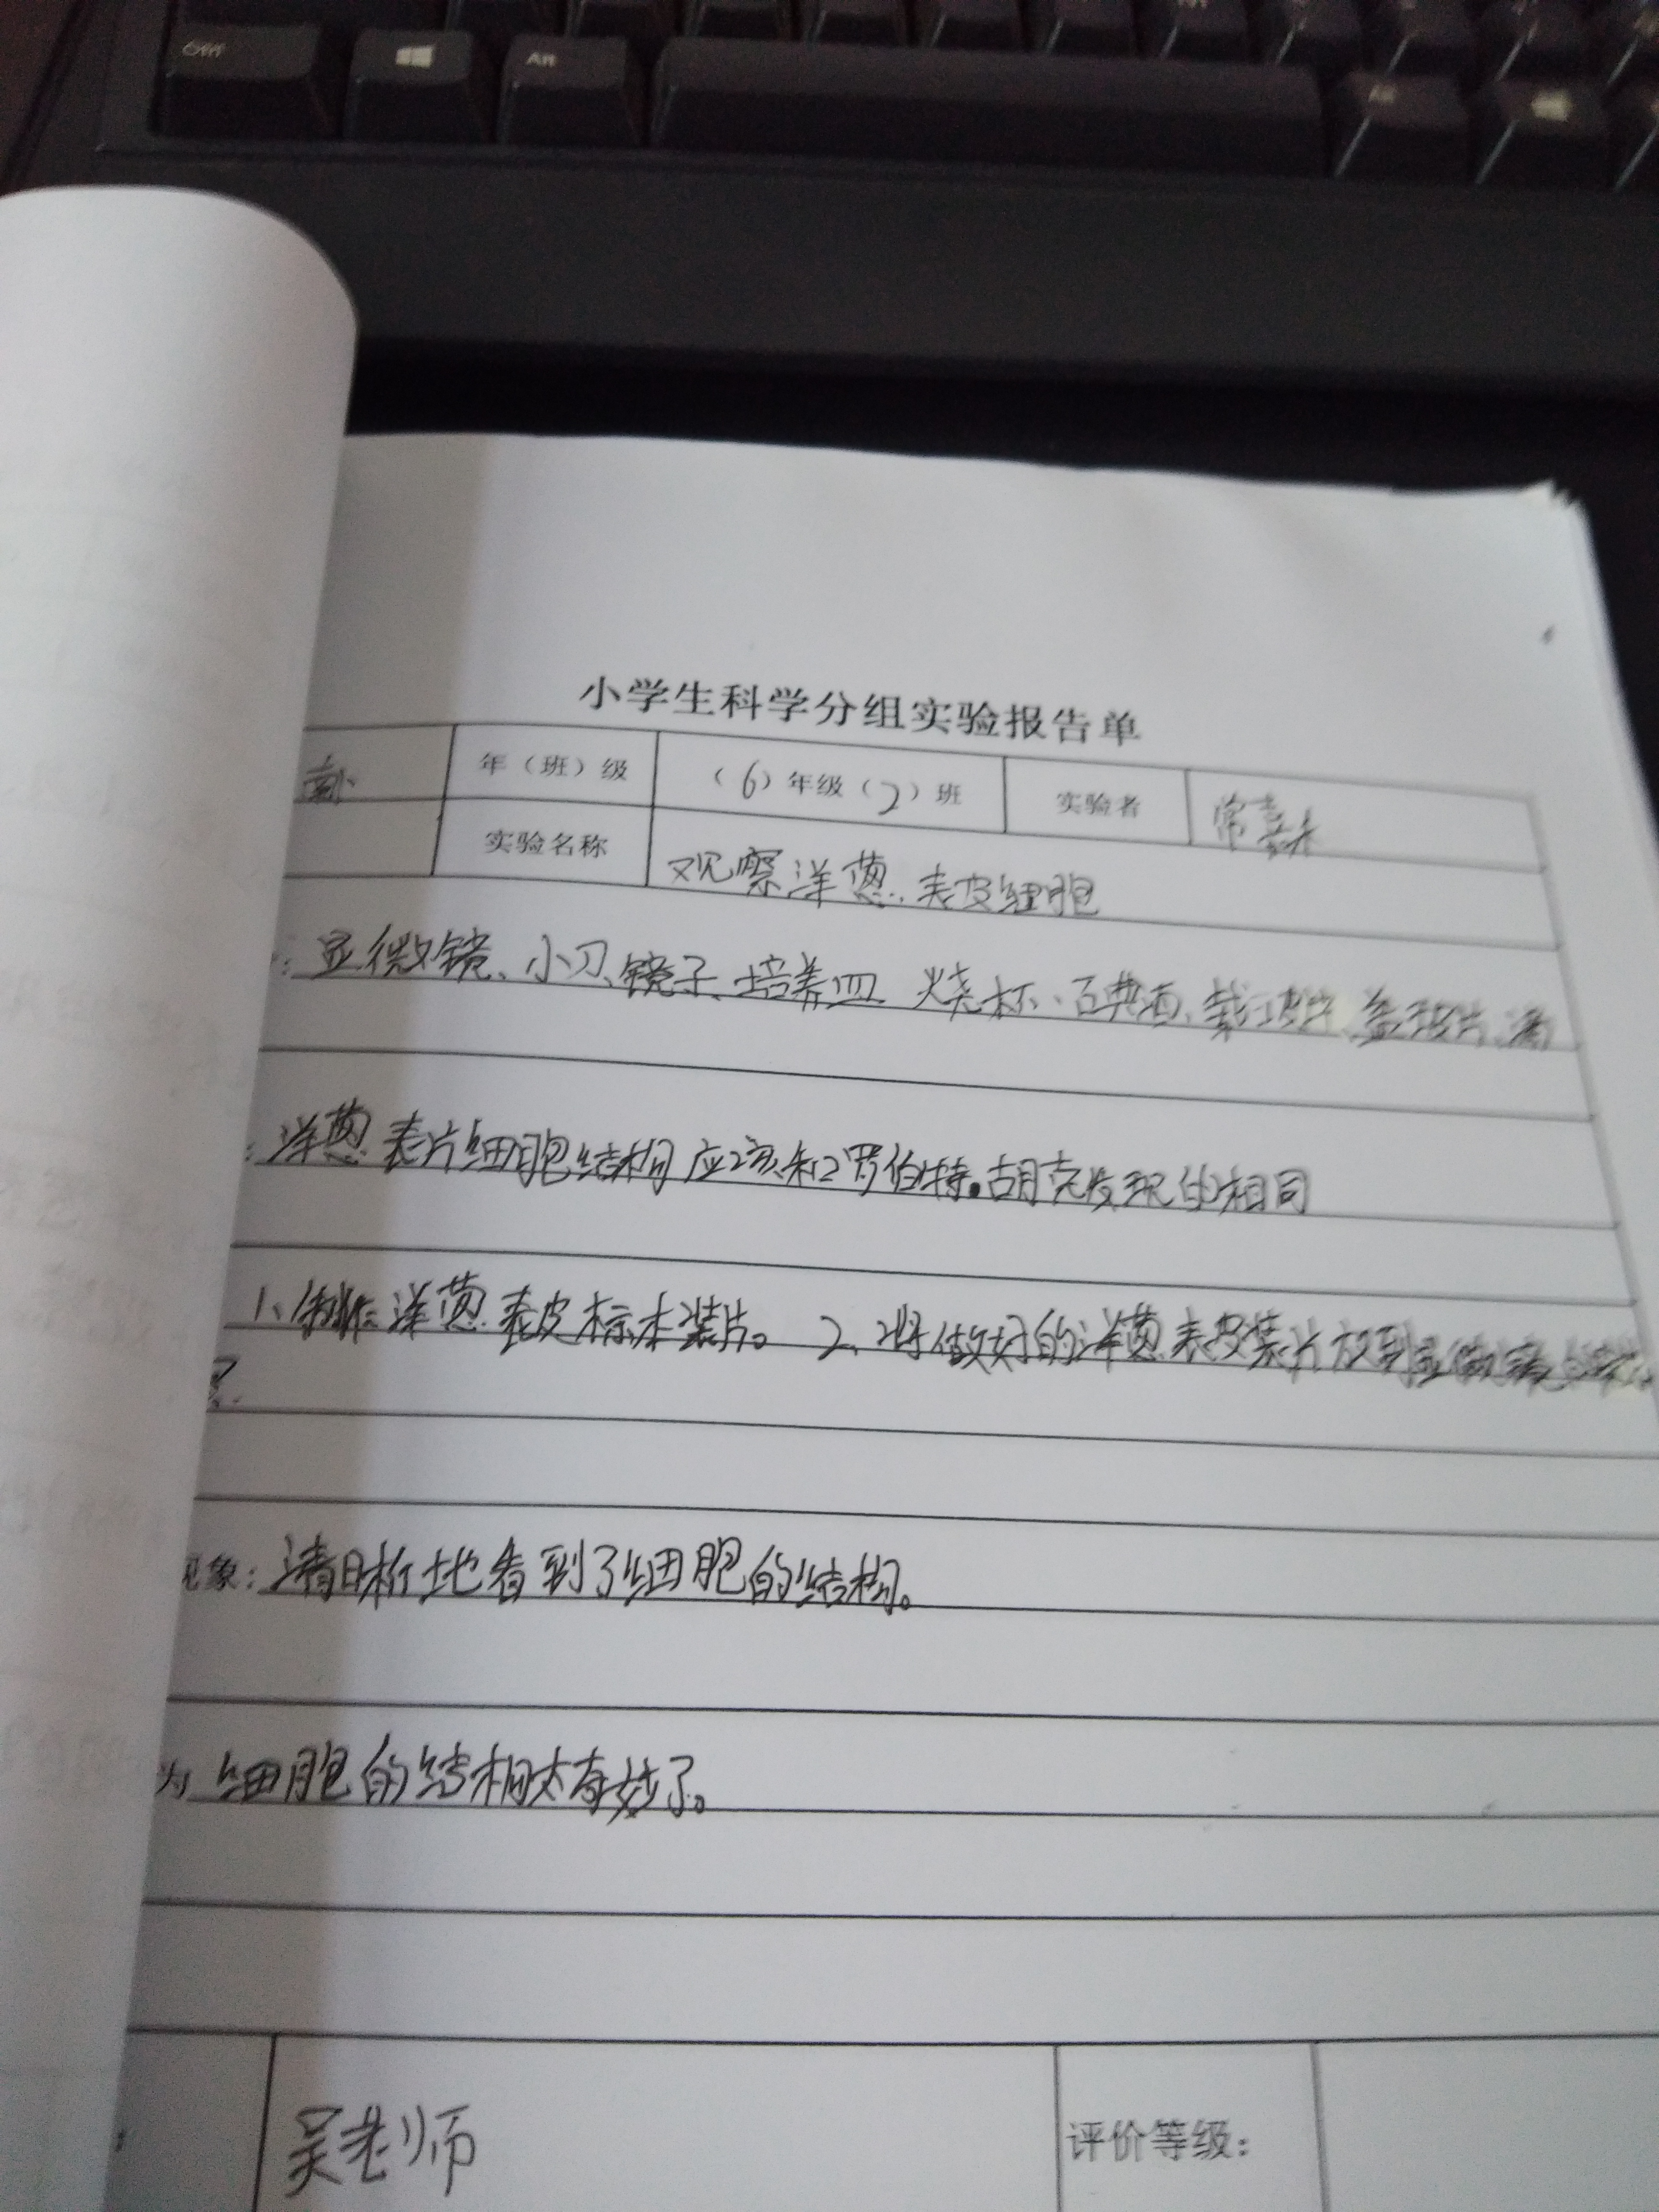 Alt
小学生科学分组实验报告单
年（班）级 （6）年级（2）班 实验者 常
实验名称 观察洋葱表皮细胞
：显微镜、小刀、镜子、培养皿 烧杯、百典酒、载玻片、盖玻片、滴
：洋葱表片细胞结构应该和罗伯特·胡克发现的相同
1、制作洋葱表皮标本装片。 2、将做好的洋葱表皮装片放到显微镜
现象：清晰地看到了细胞的结构。
为 细胞的结构太奇妙了。
吴老师 评价等级：